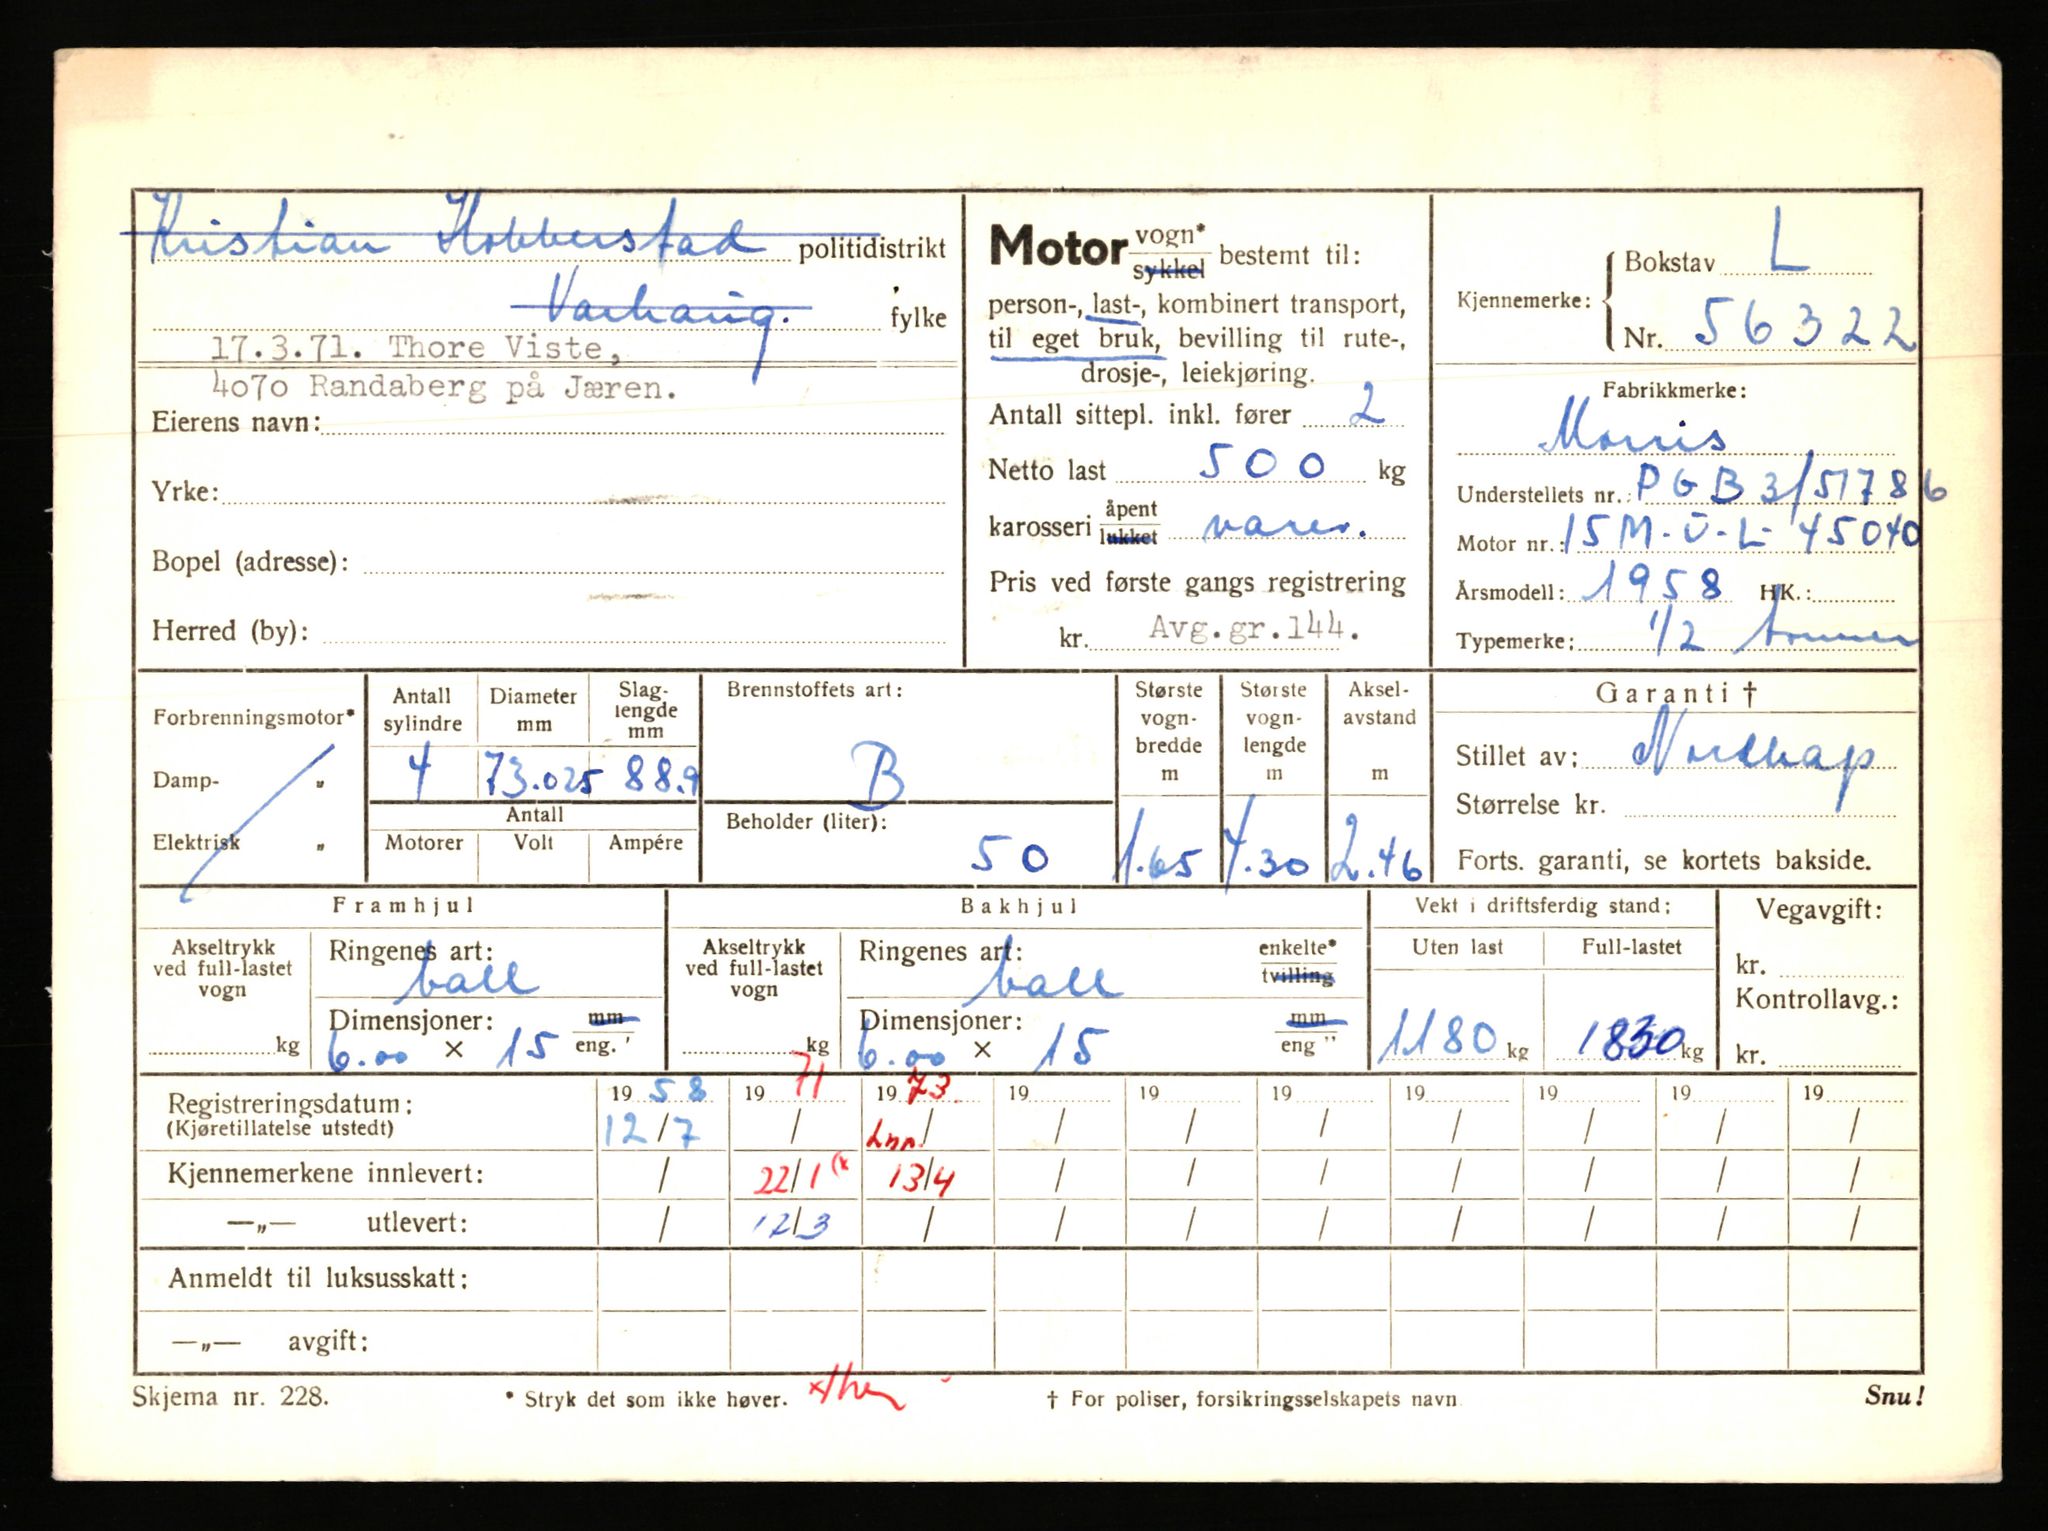 Kristian Hobberstad politidistrikt
Varhaug. fylke
17.3.71. Thore Viste,
4070 Randaberg på Jæren.
Eierens navn:
Yrke:
Bopel (adresse):
Herred (by):
Motor vogn* sykkel bestemt til:
person-, last-, kombinert transport,
til eget bruk, bevilling til rute-,
drosje-, leiekjøring.
Antall sittepl. inkl. fører 2
Netto last 500 kg
karosseri åpent lukket varev.
Pris ved første gangs registrering
kr. Avg.gr.144.
Kjennemerke: Bokstav L
Nr. 56322
Fabrikkmerke:
Morris
Understellets nr.: PGB3/51786
Motor nr.: 15M-U-L-45040
Årsmodell: 1958 HK.:
Typemerke: 1/2 tonner
Forbrenningsmotor*
Damp- "
Elektrisk "
Antall sylindre
4
Diameter mm
73.025
Slag-lengde mm
88.9
Antall
Motorer Volt Ampére
Brennstoffets art:
B
Beholder (liter):
50
Største vogn-bredde m
1.65
Største vogn-lengde m
4.30
Aksel-avstand m
2.46
Garanti †
Stillet av: Nordkap
Størrelse kr.
Forts. garanti, se kortets bakside.
Framhjul
Akseltrykk ved full-lastet vogn
kg
Ringenes art:
ball
Dimensjoner: mm
6.00 × 15 eng. '
Bakhjul
Akseltrykk ved full-lastet vogn
kg
Ringenes art: enkelte*
ball tvilling
Dimensjoner: mm
6.00 × 15 eng "
Vekt i driftsferdig stand:
Uten last Full-lastet
1180 kg 1830 kg
Vegavgift:
kr.
Kontrollavg.:
kr.
Registreringsdatum: 1958 1971 1973. 19 19 19 19 19 19 19
(Kjøretillatelse utstedt) 12/7 / Inn / / / / / / / /
Kjennemerkene innlevert: / 22/1 (x 13/4 / / / / / / /
—„— utlevert: / 12/3 / / / / / / / /
Anmeldt til luksusskatt:
—„— avgift:
Skjema nr. 228. * Stryk det som ikke høver. † For poliser, forsikringsselskapets navn Snu!